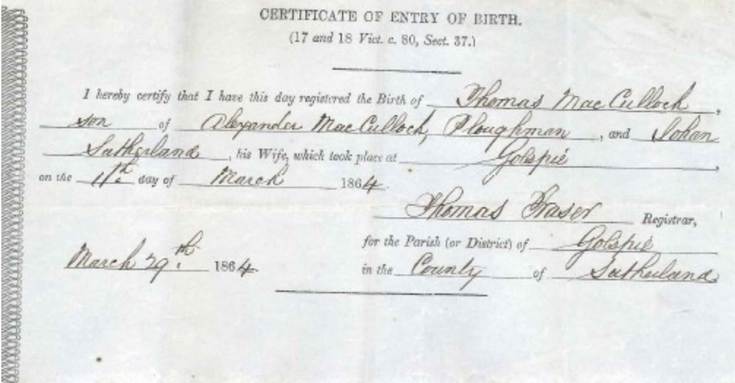 CERTIFICATE OF ENTRY OF BIRTH.
(17 and 18 Vict. c. 80, Sect. 37.)
I hereby certify that I have this day registered the Birth of Thomas MacCulloch,
son of Alexander MacCulloch, Ploughman, and Johan
Sutherland, his Wife, which took place at Golspie,
on the 11th day of March 1864.
Thomas Fraser Registrar,
for the Parish (or District) of Golspie
March 29th. 1864.
in the County of Sutherland